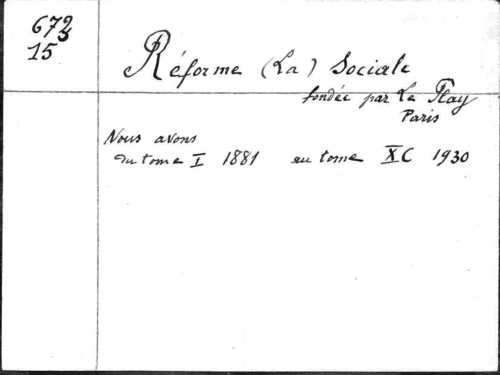 672
15
Réforme (La) Sociale
fondée par Le Play
Paris
Nous avons
du tome I 1881 au tome XC 1930